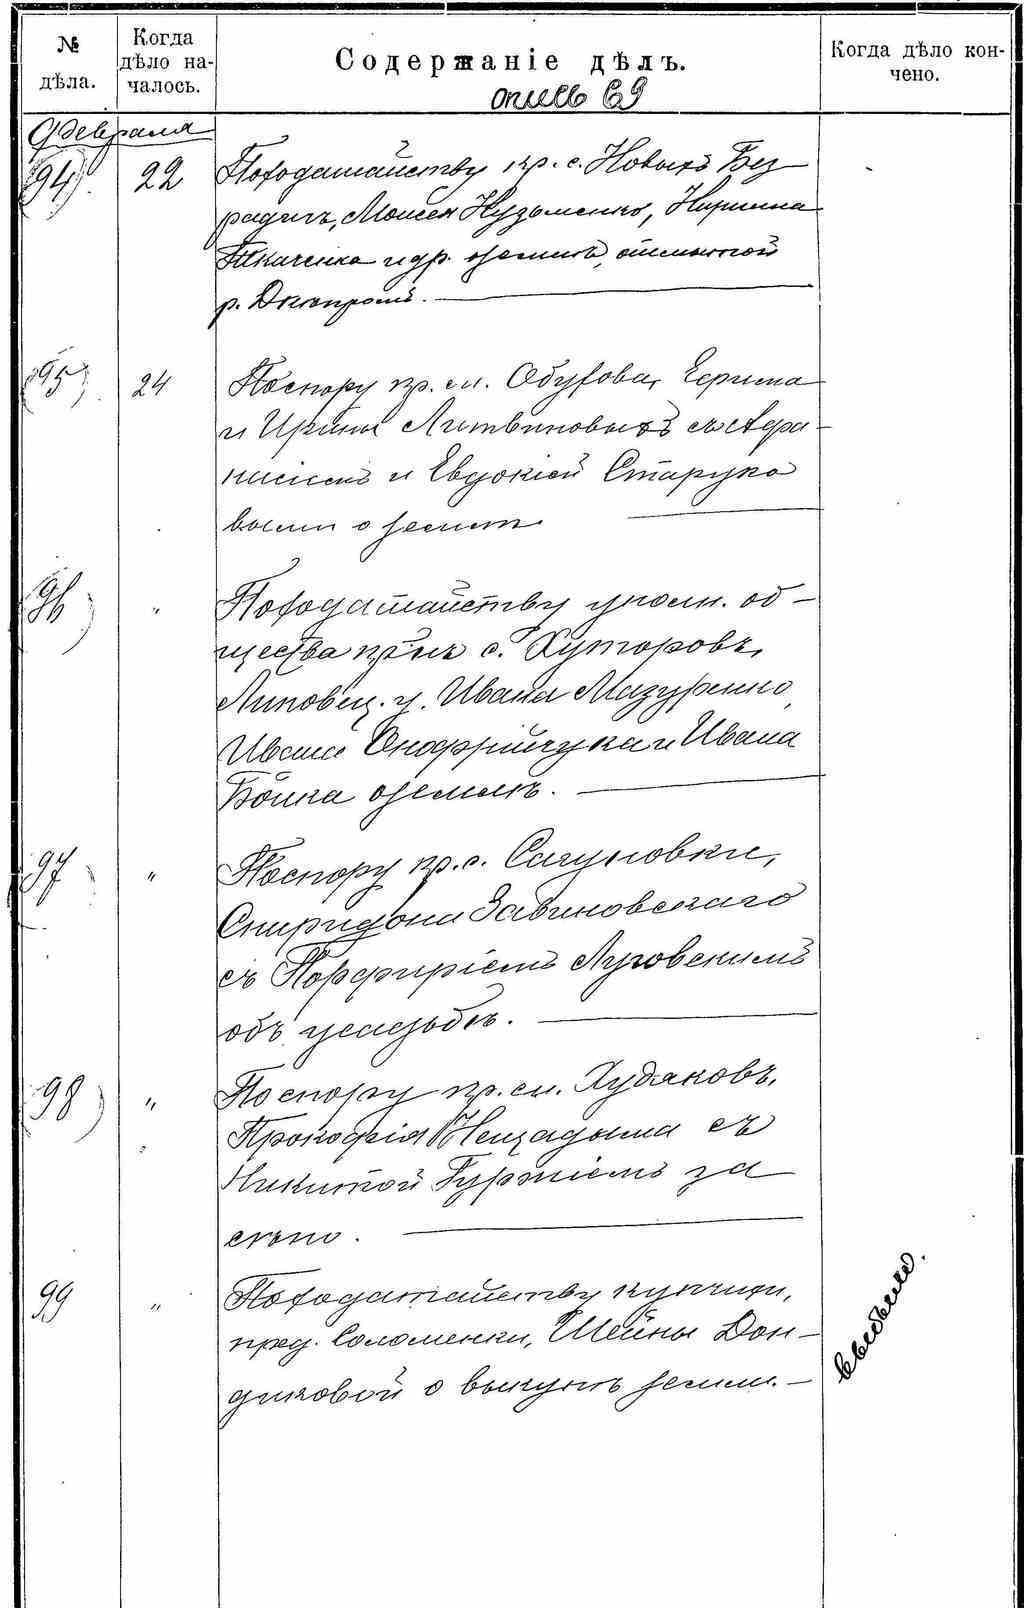 № дѣла.
Когда дѣло началось.
Содержаніе дѣлъ.
Когда дѣло кончено.
опись 69
Февраля
94) 22 По ходатайству кр. с. Новыхъ Без
радичъ, Моисея Кузьменко, Кирилла
Ткаченка и др. о землѣ, отмытой
р. Днѣпромъ.
95) 24 По спору кр. м. Обухова, Ефрима
и Ирины Литвиновыхъ съ Афа-
насіемъ и Евдокіей Старухо
выми о землѣ
96) " По ходатайству уполн. об-
щества кр-нъ с. Хуторовъ,
Липовец. у. Ивана Мазуренко,
Ивана Онофрійчука и Ивана
Бойка о землѣ.
97 " По спору кр. с. Сагуновки,
Спиридона Завиновскаго
съ Порфиріемъ Луговскимъ
объ усадьбѣ.
98) " По спору кр. см. Худяковъ,
Прокофія Нещадыма съ
Никитой Гуржіемъ за
сѣно.
99 " По ходатайству купчихи,
пред. Соломенки, Шейны Дон-
диковой о выкупѣ земли.-
выбыло.